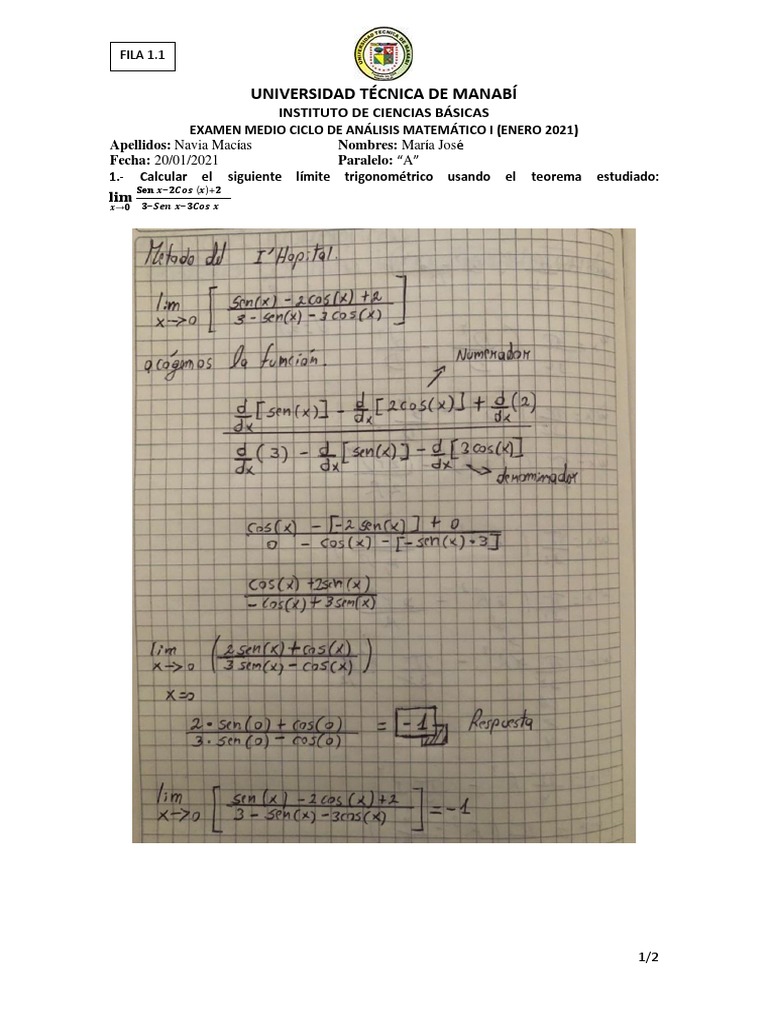 FILA 1.1
UNIVERSIDAD TÉCNICA DE MANABÍ
UNIVERSIDAD TÉCNICA DE MANABÍ
INSTITUTO DE CIENCIAS BÁSICAS
EXAMEN MEDIO CICLO DE ANÁLISIS MATEMÁTICO I (ENERO 2021)
Apellidos: Navia Macías Nombres: María José
Fecha: 20/01/2021 Paralelo: “A”
1.- Calcular el siguiente límite trigonométrico usando el teorema estudiado:
lim x→0 Sen x−2Cos (x)+2 / 3−Sen x−3Cos x
Metodo del I'Hopital.
lim x→0 [ sen(x) - 2cos(x) + 2 / 3 - sen(x) - 3cos(x) ]
acógemos la función.
Numerador
d/dx [sen(x)] - d/dx [2cos(x)] + d/dx (2)
d/dx (3) - d/dx [sen(x)] - d/dx [3cos(x)]
denominador
cos(x) - [-2sen(x)] + 0
0 - cos(x) - [-sen(x)•3]
cos(x) + 2sen(x)
- cos(x) + 3sen(x)
lim x→0 ( 2sen(x) + cos(x) / 3sen(x) - cos(x) )
x=0
2•sen(0) + cos(0) / 3•sen(0) - cos(0) = -1 Respuesta
lim x→0 [ sen(x) - 2cos(x) + 2 / 3 - sen(x) - 3cos(x) ] = -1
1/2